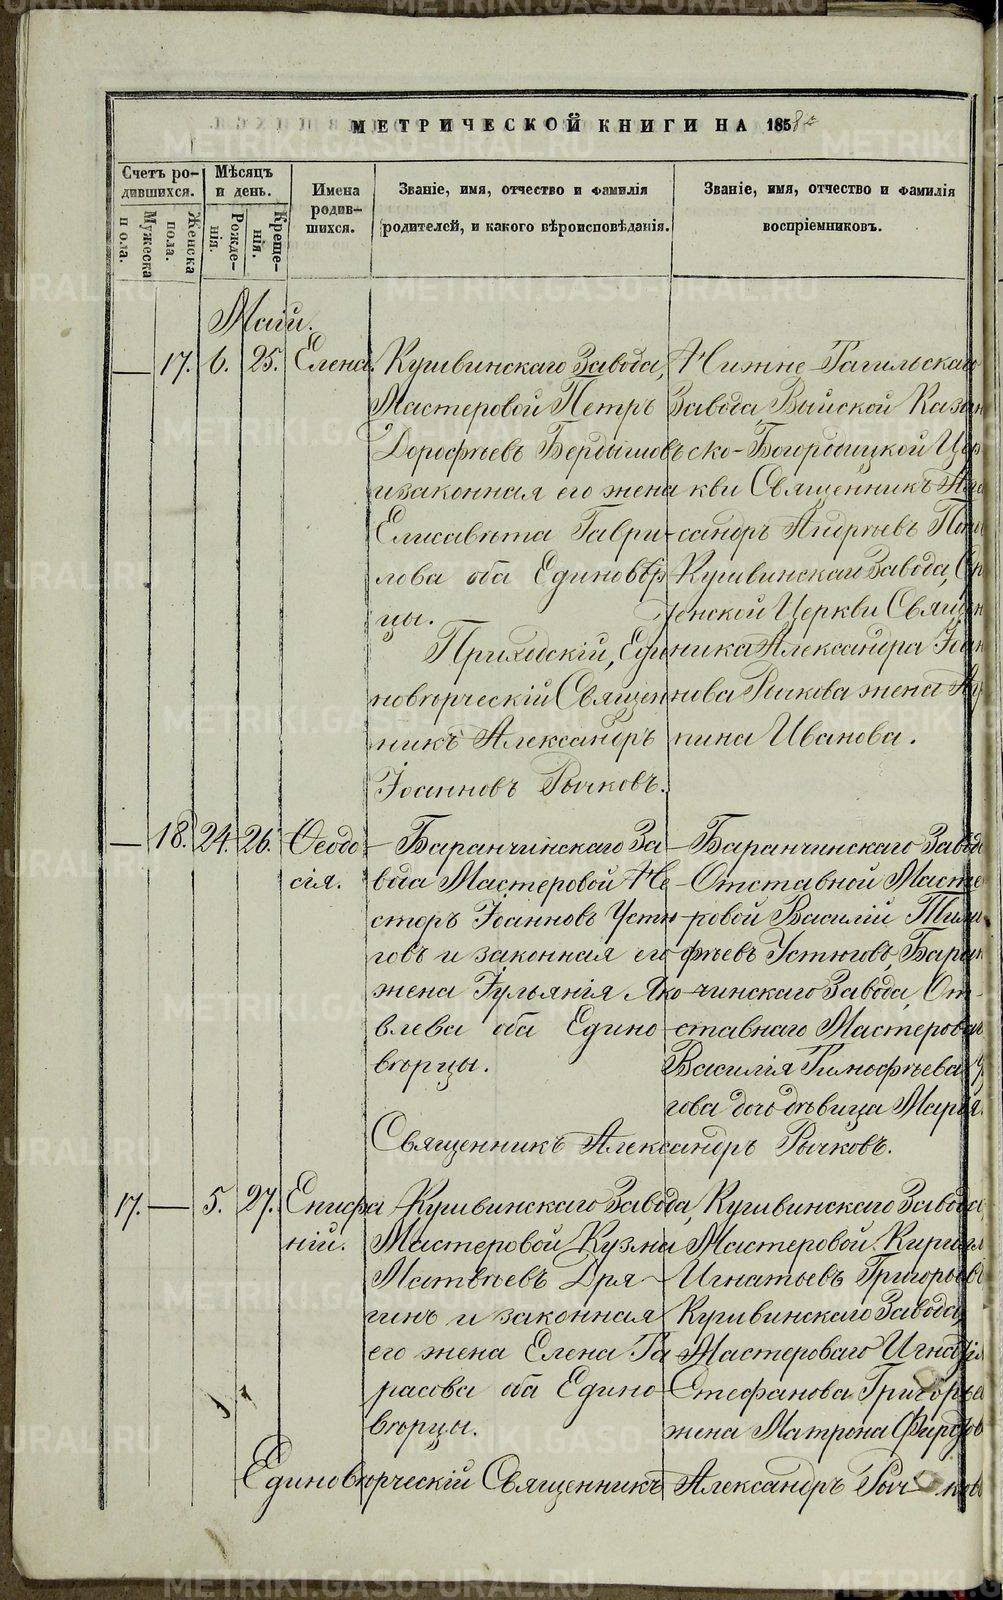 МЕТРИЧЕСКОЙ КНИГИ НА 1858
Счетъ ро-
дившихся.
Мужеска
пола.
Женска
пола.
Мѣсяцъ
и день.
Рожде-
нія.
Креще-
нія.
Имена
родив-
шихся.
Званіе, имя, отчество и фамилія
родителей, и какого вѣроисповѣданія.
Званіе, имя, отчество и фамилія
воспріемниковъ.
Маій.
— 17. 6. 25. Елена.
Кушвинскаго Завода,
Мастеровой Петръ
Дорофѣевъ Бердышовъ
и законная его жена
Елисавѣта Гаври-
лова оба Единовѣр-
цы.
Приходскій, Еди-
новѣрческій Священ-
никъ Александръ
Іоанновъ Рычковъ.
Нижне-Тагильскаго
Завода Выйской Казан
ско-Богородицкой Цер
кви Священникъ Але
сандръ Андрѣевъ
Кушвинскаго Завода,
тенской Церкви Священ
ника Александра Іоан
нова Рычкова жена
пина Иванова.
— 18. 24. 26. Ѳеодо-
сія.
Баранчинскаго За-
вода Мастеровой Не-
сторъ Іоанновъ Устю-
говъ и законная его
жена Іульянія Яко-
влева оба Едино-
вѣрцы.
Баранчинскаго Завода
Отставной Масте
ровой Василій Тимо
фѣевъ Устюговъ, Баран
чинскаго Завода, От-
ставнаго Мастероваго
Василія Тимофѣева У
гова дочь дѣвица Марья.
Священникъ Александръ Рычковъ.
17. — 5. 27. Епифа
ній.
Кушвинскаго Завода,
Мастеровой Кузма
Матвѣевъ Дря-
гинъ и законная
его жена Елена Та
расова оба Едино-
вѣрцы.
Кушвинскаго Завода
Мастеровой Кирилл
Игнатьевъ Григорьевъ
Кушвинскаго Завода,
Мастероваго Игнатія
Стефанова Григорьева
жена Матрона
Единовѣрческій Священникъ Александръ Рычковъ
METRIKI.GASO-URAL.RU